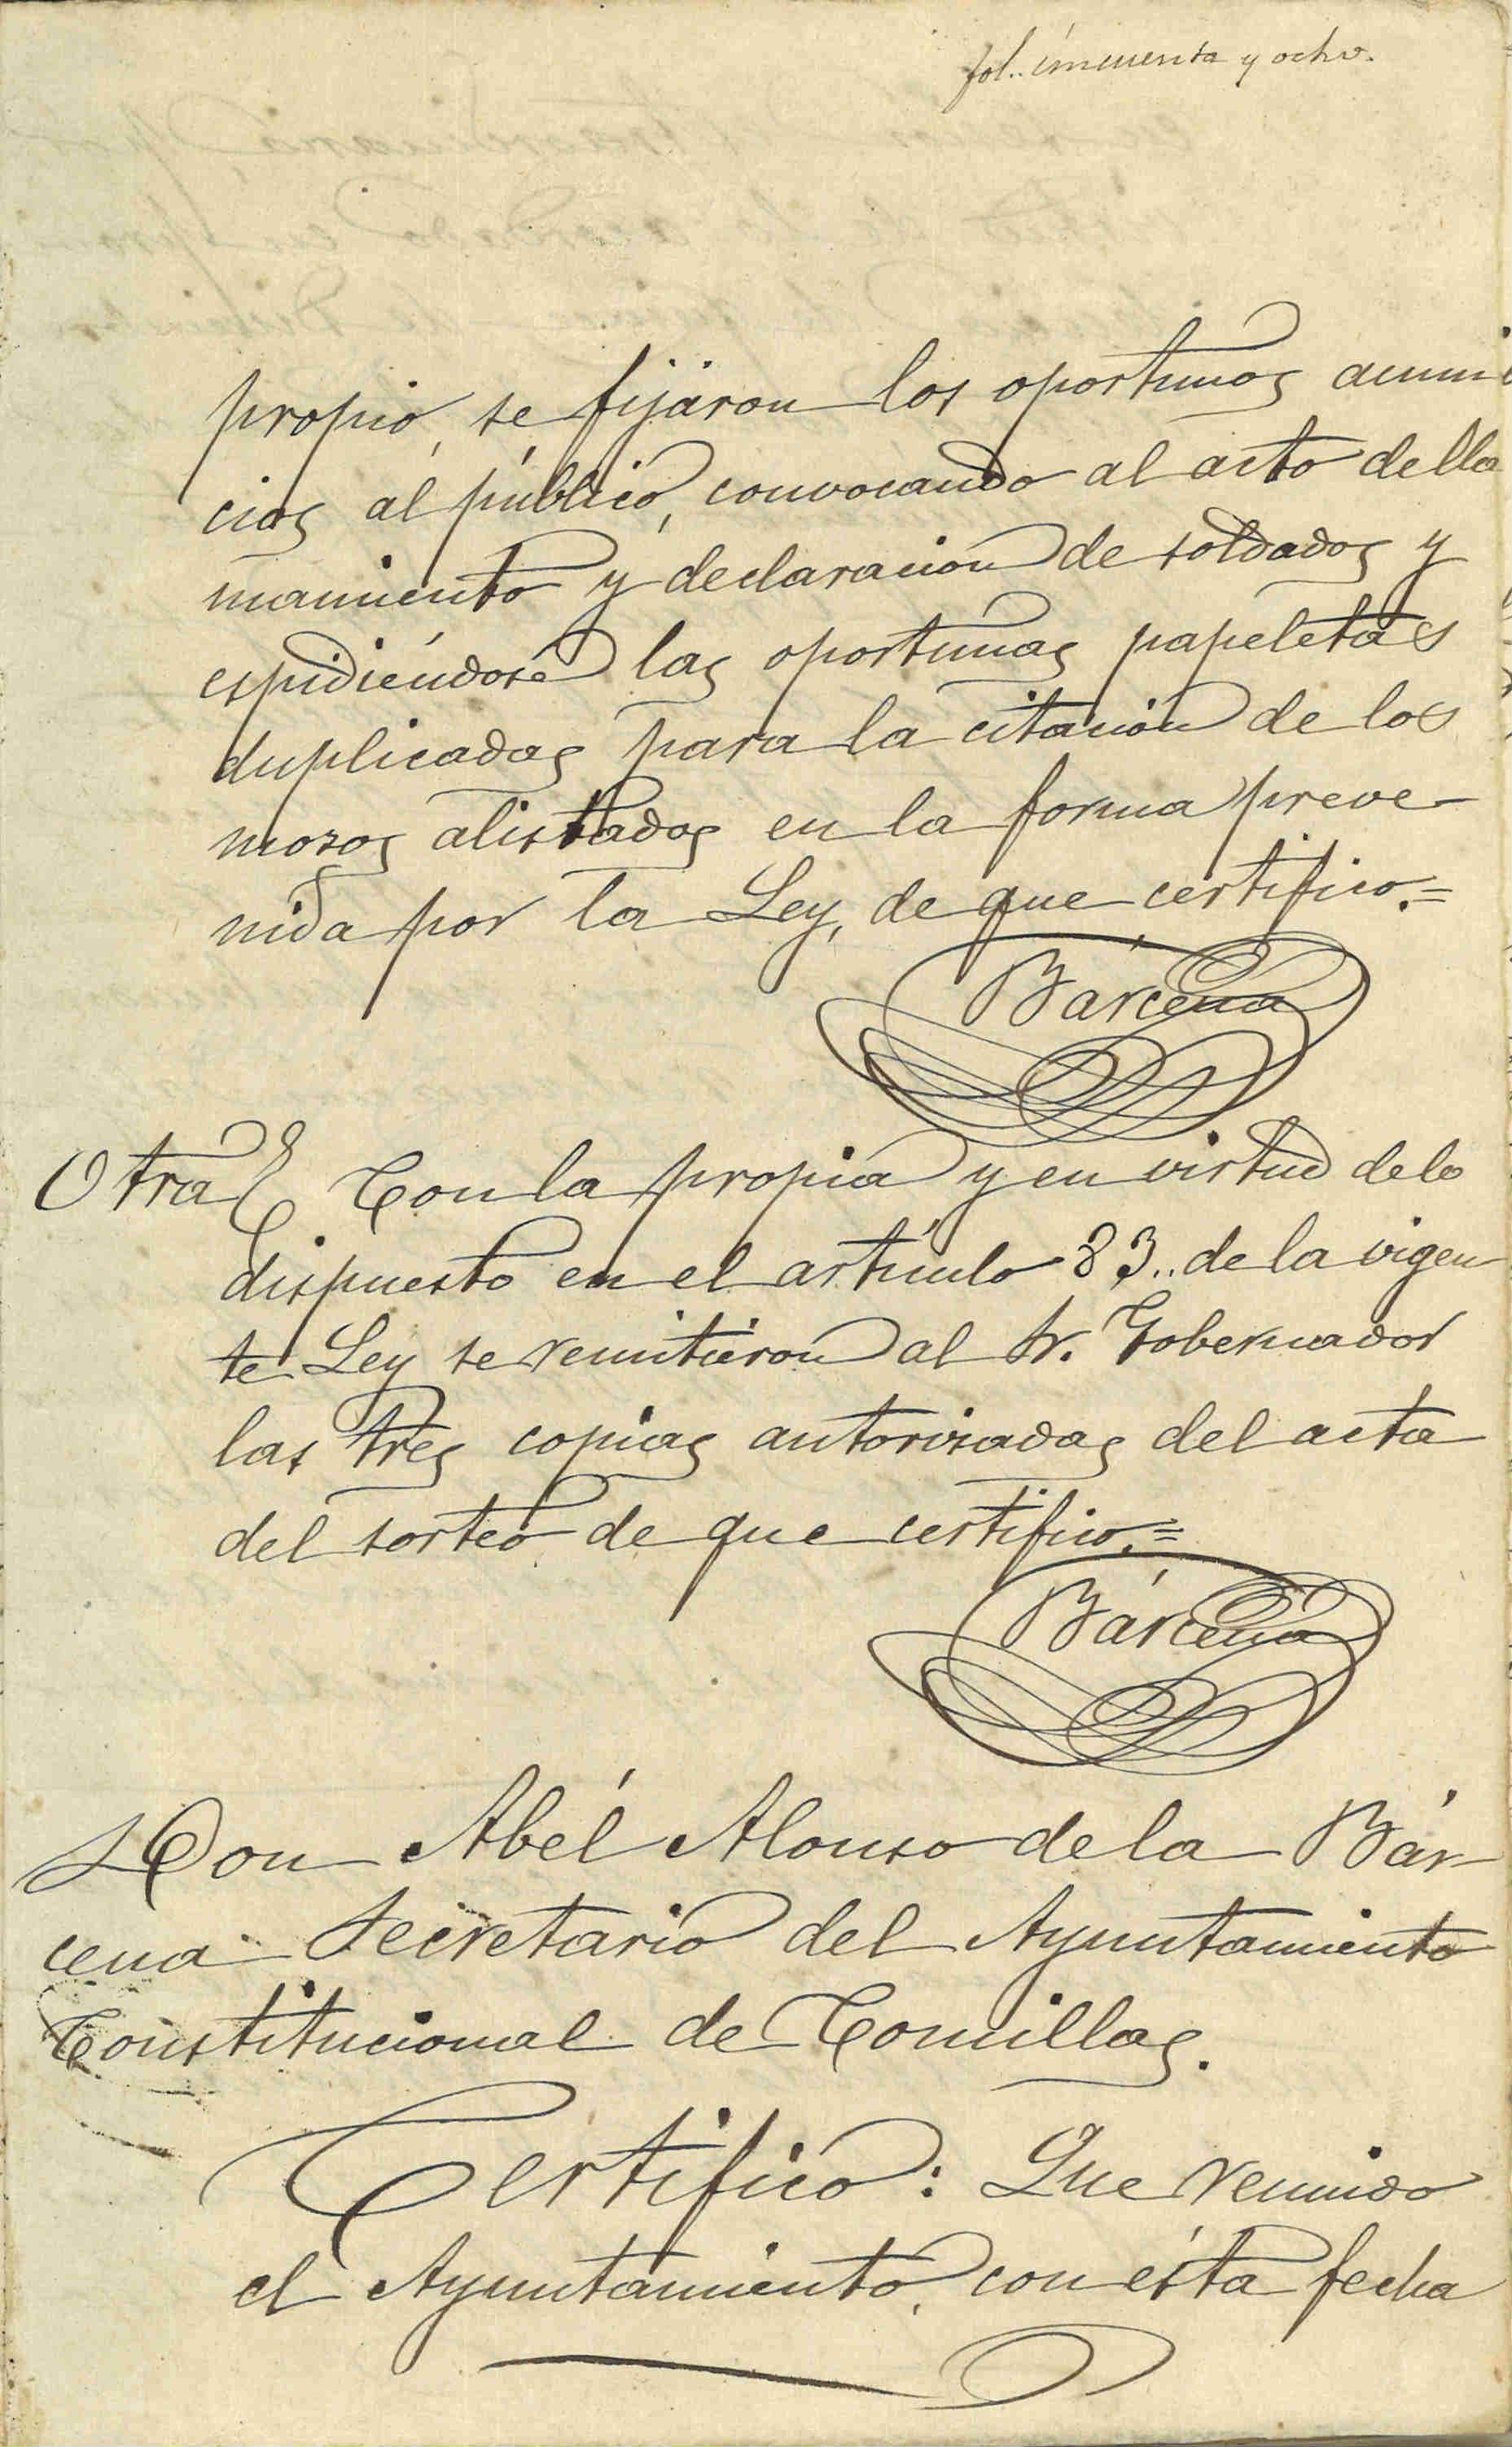 fol.. cincuenta y ocho.
propio, se fijaron los oportunos anun
cios al público, convocando al acto de lla
mamiento y declaracion de soldados y
espidiéndose las oportunas papeletas
duplicadas para la citación de los
mozos alistados en la forma preve-
nida por la Ley, de que certifico.=
Bárcena
Otra Con la propia y en virtud de lo
dispuesto en el artículo 83.. de la vigen
te Ley se remitieron al Sr. Gobernador
las tres copias autorizadas del acta
del sorteo de que certifico.=
Bárcena
Don Abél Alonso de la Bár-
cena Secretario del Ayuntamiento
Constitucional de Comillas.
Certifico: Que reunido
el Ayuntamiento, con ésta fecha